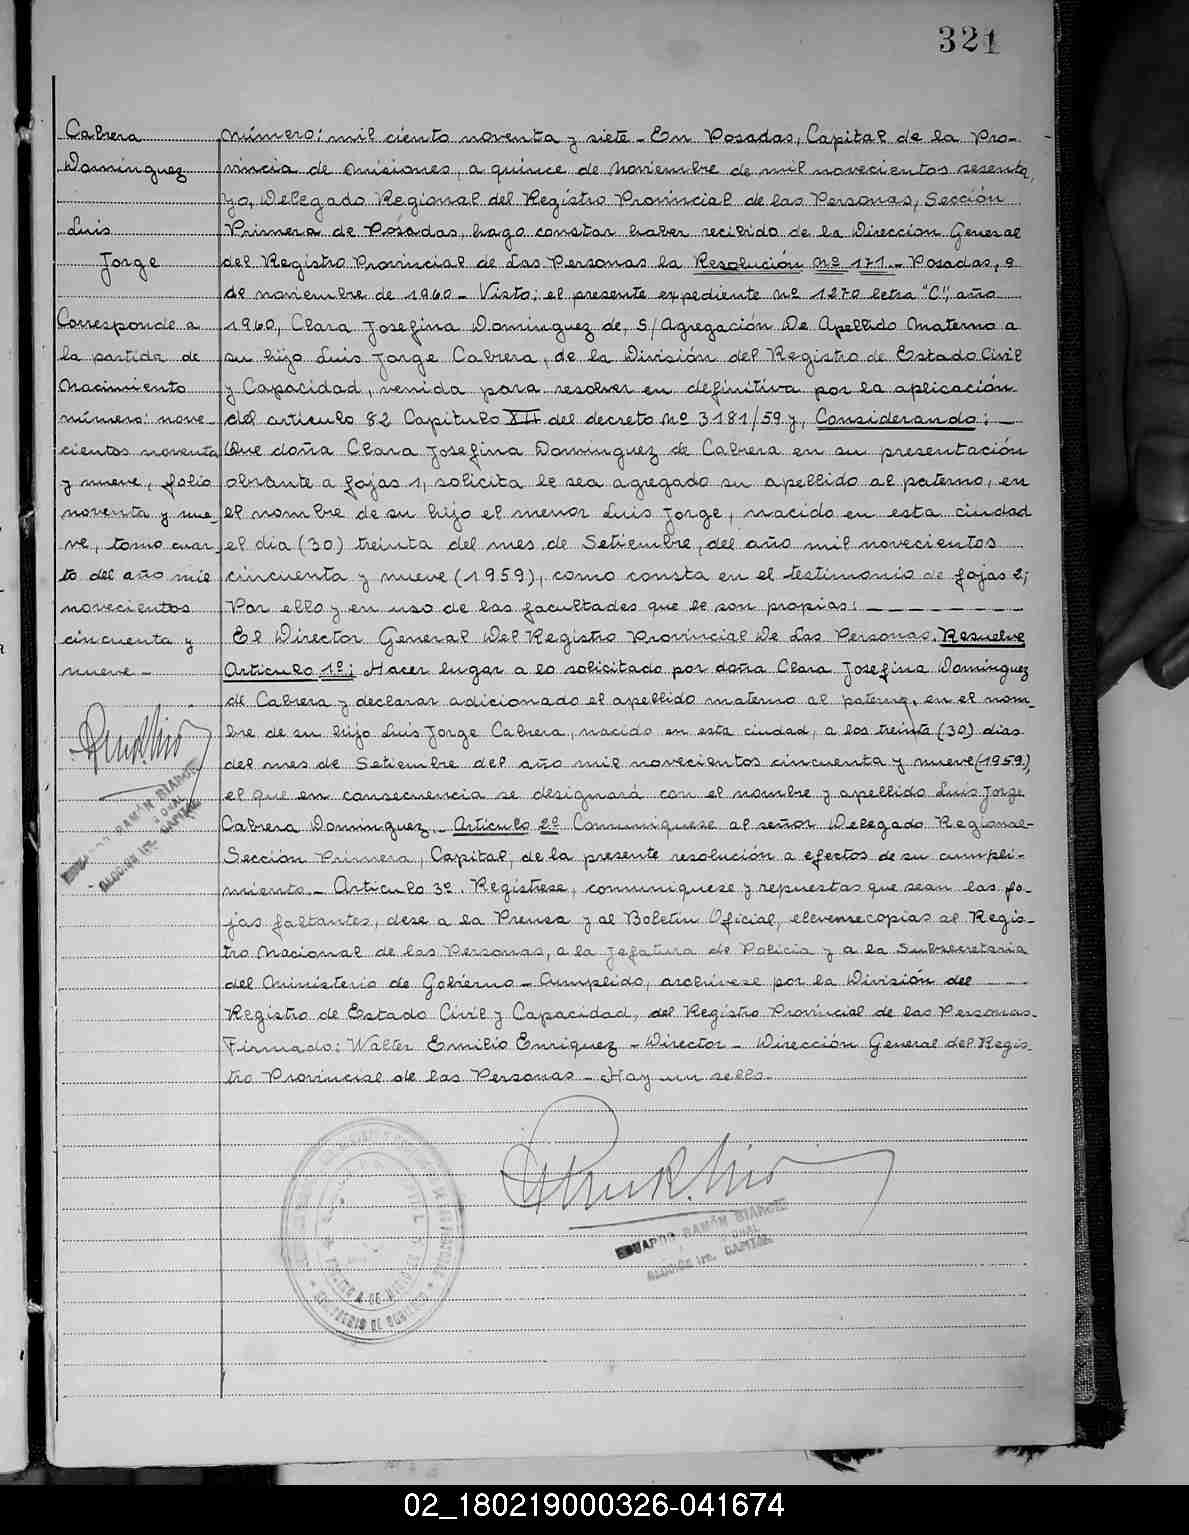 321
Cabrera
Domínguez
Luis
Jorge
Corresponde a
la partida de
Nacimiento
número: nove-
cientos noventa
y nueve, folio
noventa y nue-
ve, tomo cuar-
to del año mil
novecientos
cincuenta y
nueve-
Número: mil ciento noventa y siete - En Posadas, Capital de la Pro-
vincia de Misiones, a quince de Noviembre de mil novecientos sesenta,
Yo, Delegado Regional del Registro Provincial de las Personas, Sección
Primera de Posadas, hago constar haber recibido de la Dirección General
del Registro Provincial de Las Personas la Resolución Nº 171.- Posadas, 9
de noviembre de 1960 - Visto: el presente expediente nº 1270 letra "C", año
1960, Clara Josefina Domínguez de, S/Agregación De Apellido Materno a
su hijo Luis Jorge Cabrera, de la División del Registro de Estado Civil
y Capacidad, venida para resolver en definitiva por la aplicación
del artículo 82 Capítulo XII del decreto Nº 3181/59 y, Considerando: -
Que doña Clara Josefina Domínguez de Cabrera en su presentación
obrante a fojas 1, solicita le sea agregado su apellido al paterno, en
el nombre de su hijo el menor Luis Jorge, nacido en esta ciudad
el día (30) treinta del mes de Setiembre, del año mil novecientos
cincuenta y nueve (1959), como consta en el testimonio de fojas 2;
Por ello y en uso de las facultades que le son propias:
El Director General Del Registro Provincial De Las Personas. Resuelve
Artículo 1º: Hacer lugar a lo solicitado por doña Clara Josefina Domínguez
de Cabrera y declarar adicionado el apellido materno al paterno, en el nom-
bre de su hijo Luis Jorge Cabrera, nacido en esta ciudad, a los treinta (30) días
del mes de Setiembre del año mil novecientos cincuenta y nueve (1959),
el que en consecuencia se designará con el nombre y apellido Luis Jorge
Cabrera Domínguez.- Artículo 2º Comuníquese al señor Delegado Regional-
Sección Primera, Capital, de la presente resolución a efectos de su cumpli-
miento.- Artículo 3º. Regístrese, comuníquese y repuestas que sean las fo-
jas faltantes, dese a la Prensa y al Boletín Oficial, elevense copias al Regis-
tro Nacional de las Personas, a la Jefatura de Policía y a la Subsecretaria
del Ministerio de Gobierno - Cumplido, archívese por la División del
Registro de Estado Civil y Capacidad, del Registro Provincial de las Personas-
Firmado: Walter Emilio Enriquez - Director - Dirección General del Regis-
tro Provincial de las Personas - Hay un sello-
EDUARDO RAMÓN BIANCHI
CAPITAL
02_180219000326-041674